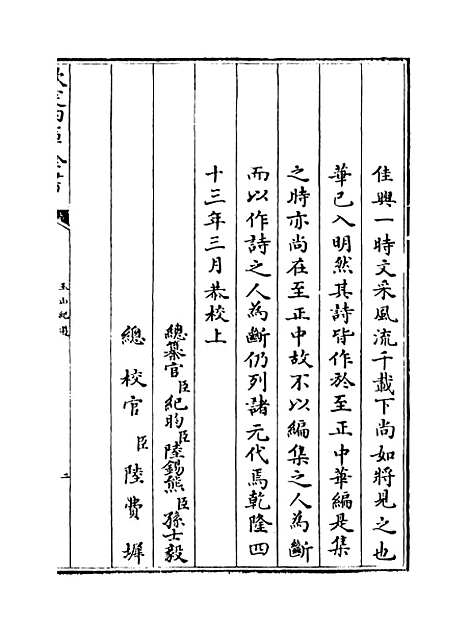 佳興一時文采風流千載下尚如將見之也
華已入明然其詩皆作於至正中華編是集
之時亦尚在至正中故不以編集之人為斷
而以作詩之人為斷仍列諸元代焉乾隆四
十三年三月恭校上
總纂官臣紀昀臣陸錫熊臣孫士毅
總校官臣陸費墀
欽定四庫全書
玉山紀遊
二